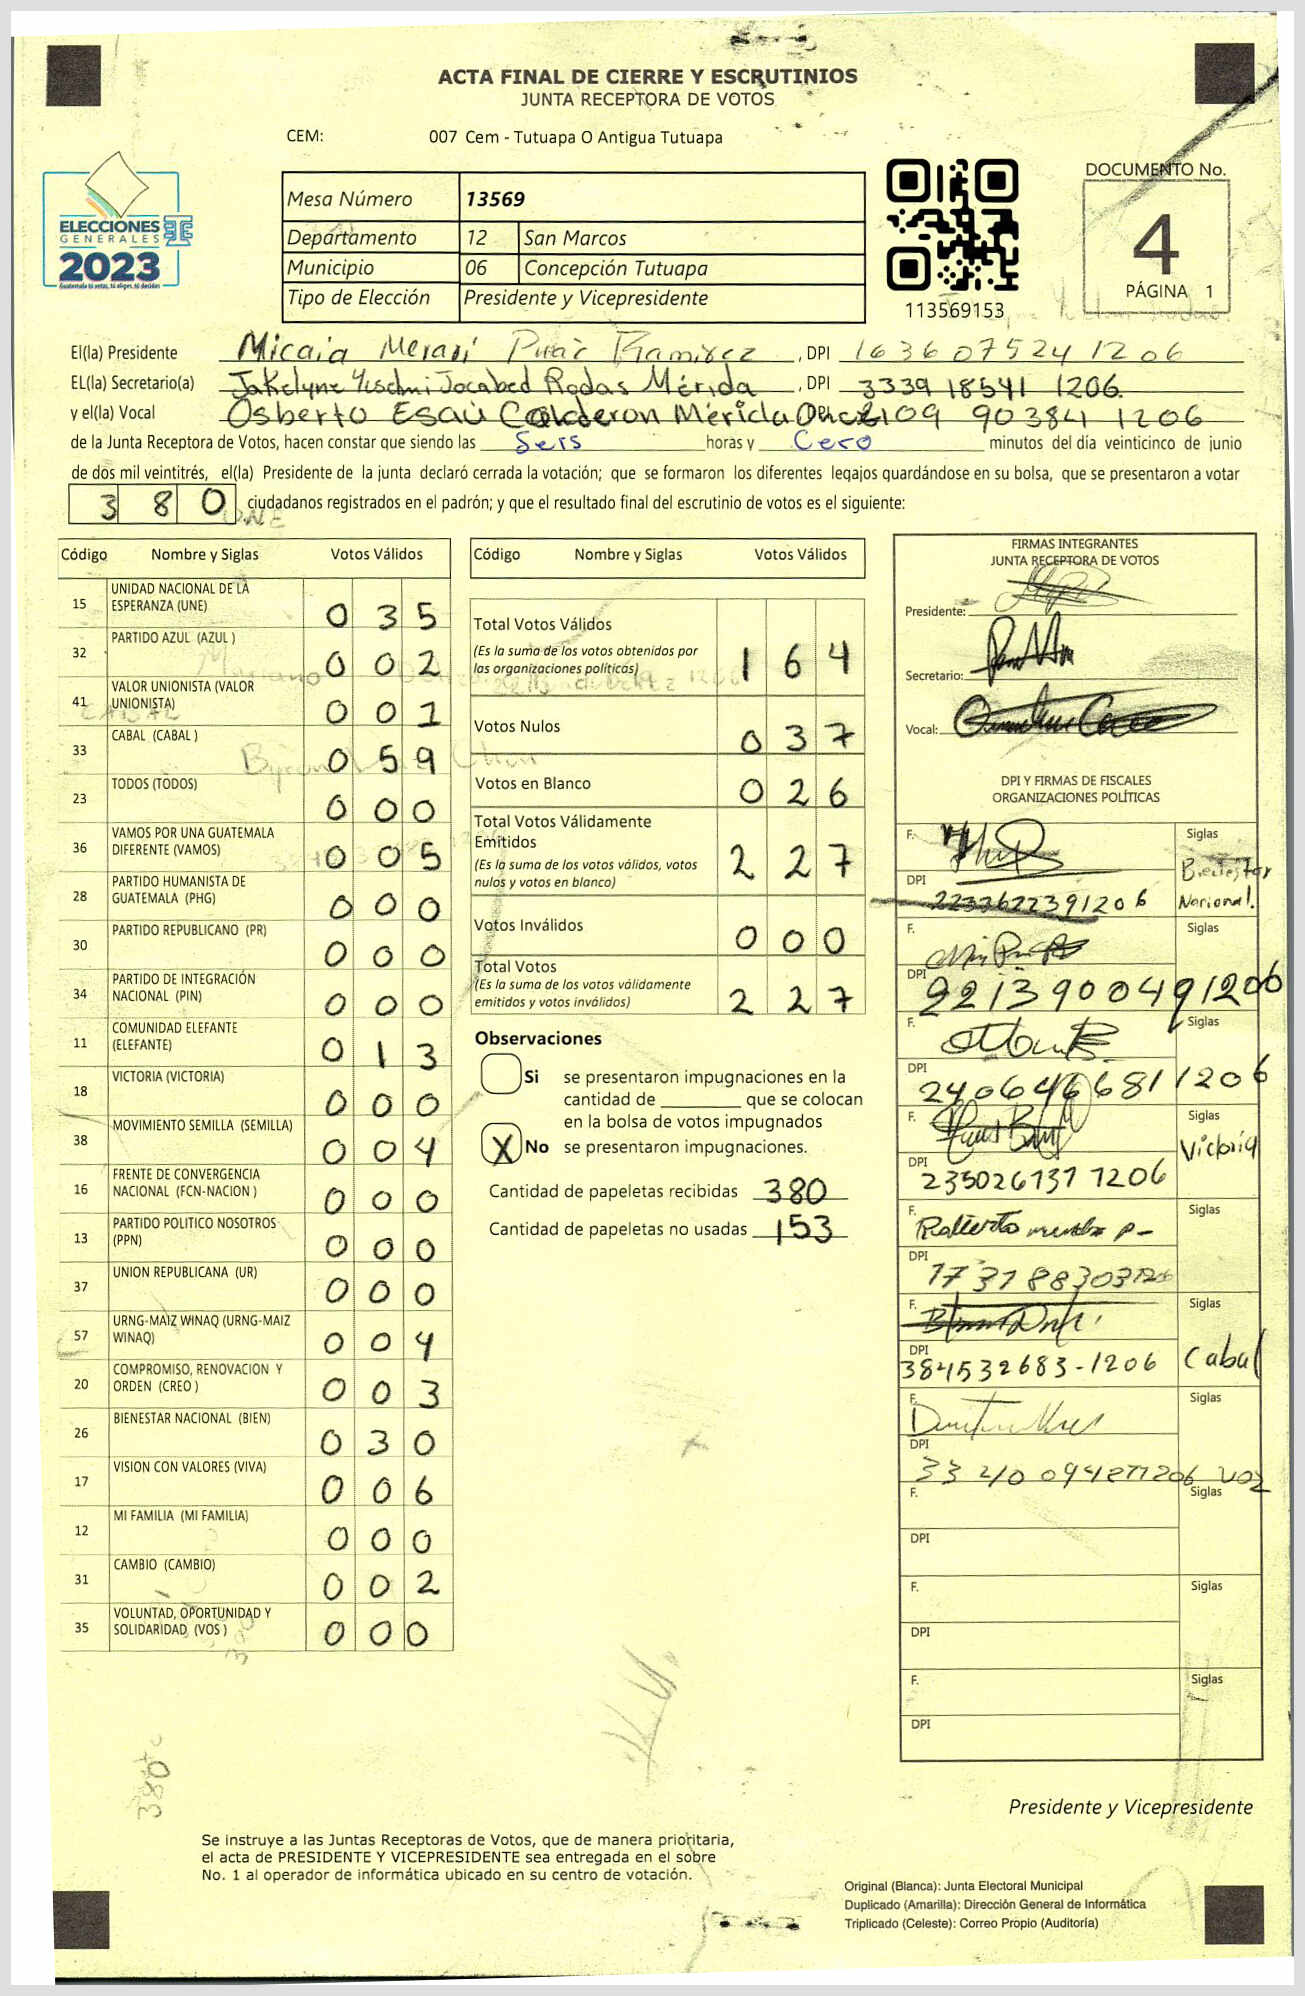 ACTA FINAL DE CIERRE Y ESCRUTINIOS
JUNTA RECEPTORA DE VOTOS
CEM: 007 Cem - Tutuapa O Antigua Tutuapa
ELECCIONES
GENERALES
2023
Guatemala tú votas, tú eliges, tú decides
Mesa Número 13569
Departamento 12 San Marcos
Municipio 06 Concepción Tutuapa
Tipo de Elección Presidente y Vicepresidente
113569153
DOCUMENTO No.
4
PÁGINA 1
El(la) Presidente Micaia Ramirez, DPI 1636075241206
EL(la) Secretario(a) Jocabed Rodas Mérida, DPI 3339 18541 1206.
y el(la) Vocal Osberto Esaú Calderon Mérida 109 90384 1206
de la Junta Receptora de Votos, hacen constar que siendo las Seis horas y Cero minutos del día veinticinco de junio
de dos mil veintitrés, el(la) Presidente de la junta declaró cerrada la votación; que se formaron los diferentes legajos guardándose en su bolsa, que se presentaron a votar
380 ciudadanos registrados en el padrón; y que el resultado final del escrutinio de votos es el siguiente:
UNE
Código Nombre y Siglas Votos Válidos
15 UNIDAD NACIONAL DE LA ESPERANZA (UNE) 035
32 PARTIDO AZUL (AZUL ) 002
41 VALOR UNIONISTA (VALOR UNIONISTA) 001
33 CABAL (CABAL ) 059
23 TODOS (TODOS) 000
36 VAMOS POR UNA GUATEMALA DIFERENTE (VAMOS) 005
28 PARTIDO HUMANISTA DE GUATEMALA (PHG) 000
30 PARTIDO REPUBLICANO (PR) 000
34 PARTIDO DE INTEGRACIÓN NACIONAL (PIN) 000
11 COMUNIDAD ELEFANTE (ELEFANTE) 013
18 VICTORIA (VICTORIA) 000
38 MOVIMIENTO SEMILLA (SEMILLA) 004
16 FRENTE DE CONVERGENCIA NACIONAL (FCN-NACION ) 000
13 PARTIDO POLITICO NOSOTROS (PPN) 000
37 UNION REPUBLICANA (UR) 000
57 URNG-MAIZ WINAQ (URNG-MAIZ WINAQ) 004
20 COMPROMISO, RENOVACION Y ORDEN (CREO ) 003
26 BIENESTAR NACIONAL (BIEN) 030
17 VISION CON VALORES (VIVA) 006
12 MI FAMILIA (MI FAMILIA) 000
31 CAMBIO (CAMBIO) 002
35 VOLUNTAD, OPORTUNIDAD Y SOLIDARIDAD (VOS ) 000
Código Nombre y Siglas Votos Válidos
Total Votos Válidos 164
(Es la suma de los votos obtenidos por
las organizaciones políticas)
Votos Nulos 037
Votos en Blanco 026
Total Votos Válidamente
Emitidos 227
(Es la suma de los votos válidos, votos
nulos y votos en blanco)
Votos Inválidos 000
Total Votos 227
(Es la suma de los votos válidamente
emitidos y votos inválidos)
Observaciones
Si se presentaron impugnaciones en la
cantidad de ________ que se colocan
en la bolsa de votos impugnados
X No se presentaron impugnaciones.
Cantidad de papeletas recibidas 380
Cantidad de papeletas no usadas 153
FIRMAS INTEGRANTES
JUNTA RECEPTORA DE VOTOS
Presidente:
Secretario:
Vocal:
DPI Y FIRMAS DE FISCALES
ORGANIZACIONES POLÍTICAS
F. Siglas
Bienestar
Nacional.
DPI 2233622391206
F. Siglas
DPI 2213900491206
F. Siglas
DPI 2406466811206
F. Siglas
Victoria
DPI 235026737 1206
F. Roberto Siglas
DPI
F. Siglas
DPI 384532683-1206 Cabal
F. Siglas
DPI VOZ
F. Siglas
DPI
F. Siglas
DPI
F. Siglas
DPI
380
Presidente y Vicepresidente
Se instruye a las Juntas Receptoras de Votos, que de manera prioritaria,
el acta de PRESIDENTE Y VICEPRESIDENTE sea entregada en el sobre
No. 1 al operador de informática ubicado en su centro de votación.
Original (Blanca): Junta Electoral Municipal
Duplicado (Amarilla): Dirección General de Informática
Triplicado (Celeste): Correo Propio (Auditoría)